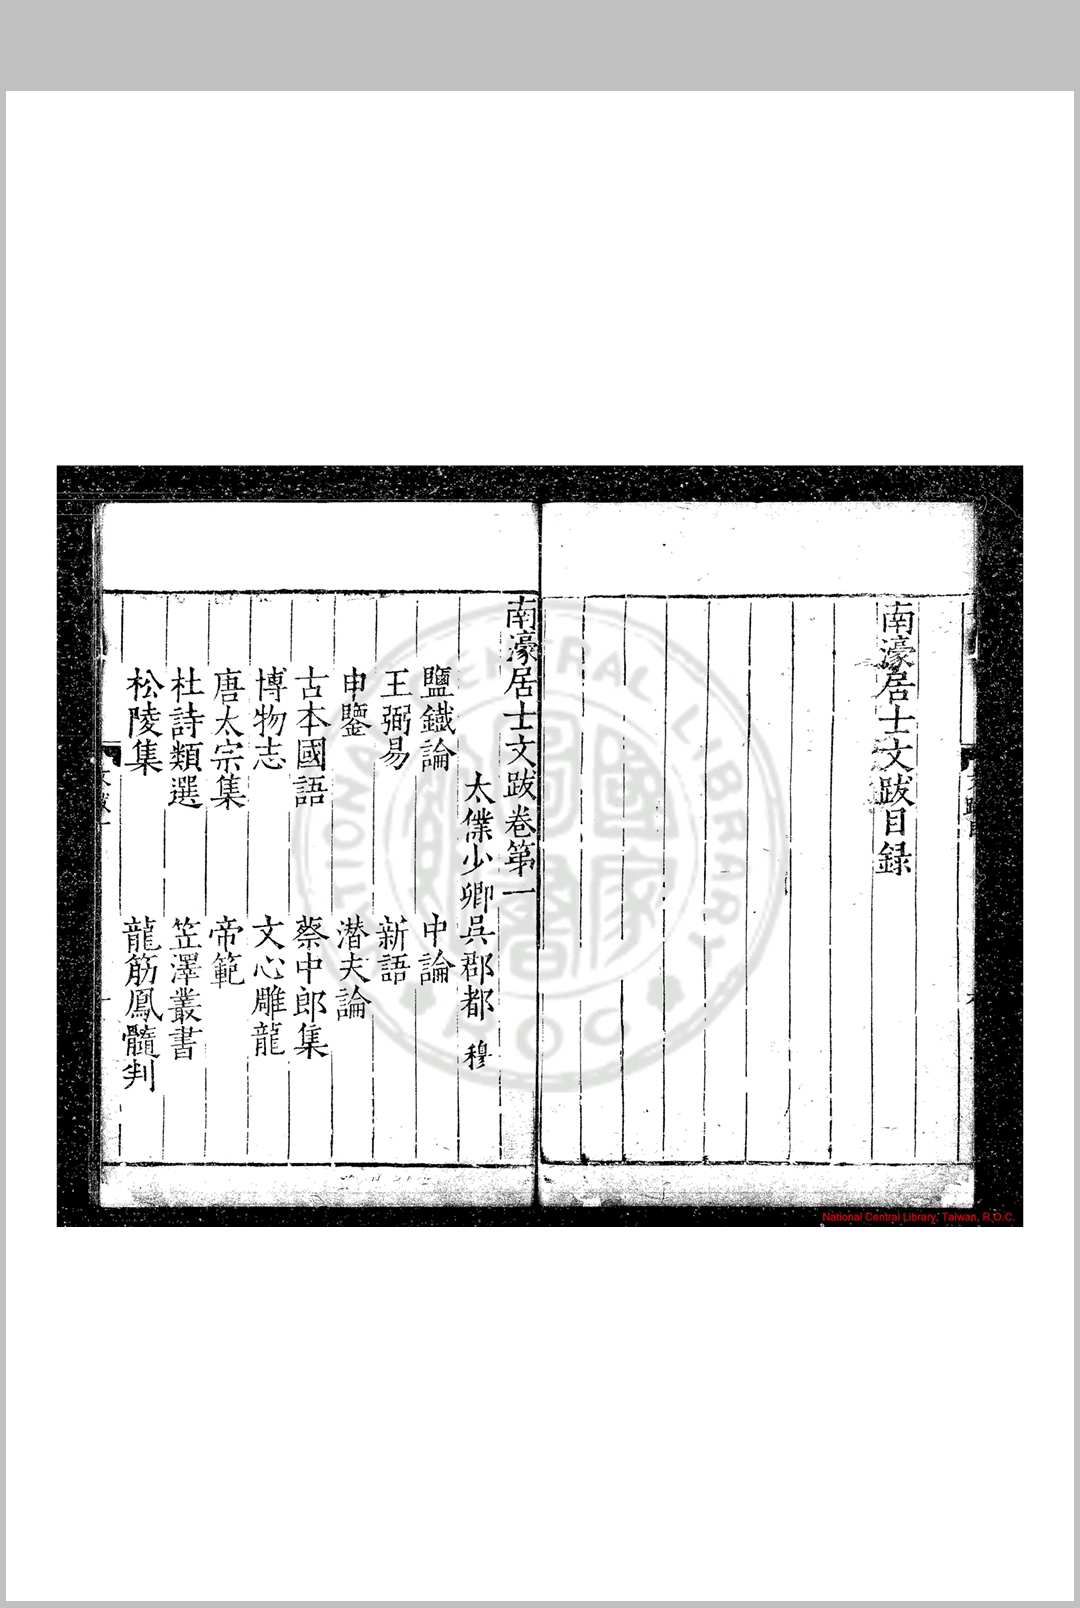 南濠居士文跋目録
南濠居士文跋卷第一
太僕少卿吳郡都 穆
鹽鐵論 中論
王弼易 新語
申鑒 潜夫論
古本國語 蔡中郎集
博物志 文心雕龍
唐太宗集 帝範
杜詩類選 笠澤叢書
松陵集 龍筋鳳髓判
National Central Library, Taiwan, R.O.C.